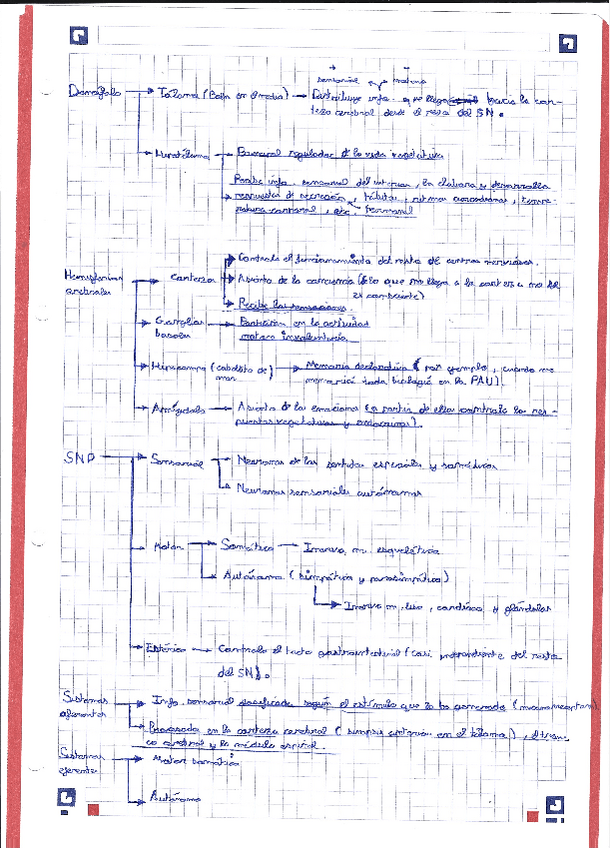 sensorial motora
Diencéfalo → Tálamo (Bola en el medio) → Distribuye info. que llega hacia la cor-
teza cerebral desde el resto del SN.
→ Hipotálamo → Principal regulador de la vida vegetativa
Recibe info. sensorial del interior, la elabora y desarrolla
respuestas de secreción, hábitos, ritmos circadianos, tempe-
ratura corporal, etc. hormonal
Hemisferios
cerebrales → Corteza → Controla el funcionamiento del resto de centros nerviosos.
→ Asiento de la conciencia (lo que no llega a la corteza no se
es consciente)
→ Recibe las sensaciones.
→ Ganglios
basales → Participan en la actividad
motora involuntaria.
→ Hipocampo (caballito de
mar) → Memoria declarativa (por ejemplo, cuando me
memoricé toda biología en la PAU).
→ Amígdala → Asiento de las emociones (a partir de ellas controla las res-
puestas vegetativas y endocrinas).
SNP → Sensorial → Neuronas de los sentidos especiales y somáticos
→ Neuronas sensoriales autónomas
→ Motor → Somático → Inerva m. esquelético
→ Autónomo (simpático y parasimpático)
→ Inerva m. liso, cardíaco y glándulas
→ Entérico → Controla el tracto gastrointestinal (casi independiente del resto
del SN).
Sistemas
aferentes → Info. sensorial clasificada según el estímulo que la ha generado
→ Procesada en la corteza cerebral (siempre anterior en el tálamo), el tron-
co cerebral y la médula espinal.
Sistemas
eferente → Motor somático
→ Autónomo